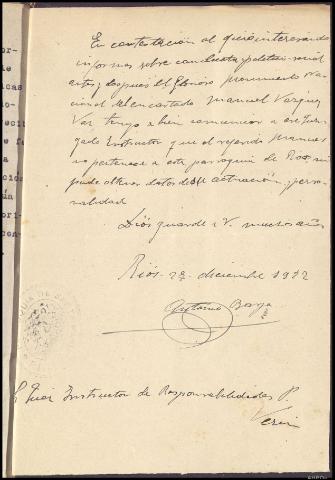 En contestación al que interesando
informes sobre conducta político-social
antes y después del Glorioso Movimiento Na-
cional del encartado Manuel Vazquez
Vaz, tengo a bien comunicar a ese Juz-
gado Instructor que el referido Manuel
no pertenece a esta parroquia de Rios, ni
pude obtener datos de su actuación y perso-
nalidad
Dios guarde a V. muchos años
Riós 2 diciembre 1942
Antonio Borja
Juez Instructor de Responsabilidades P.
Verin